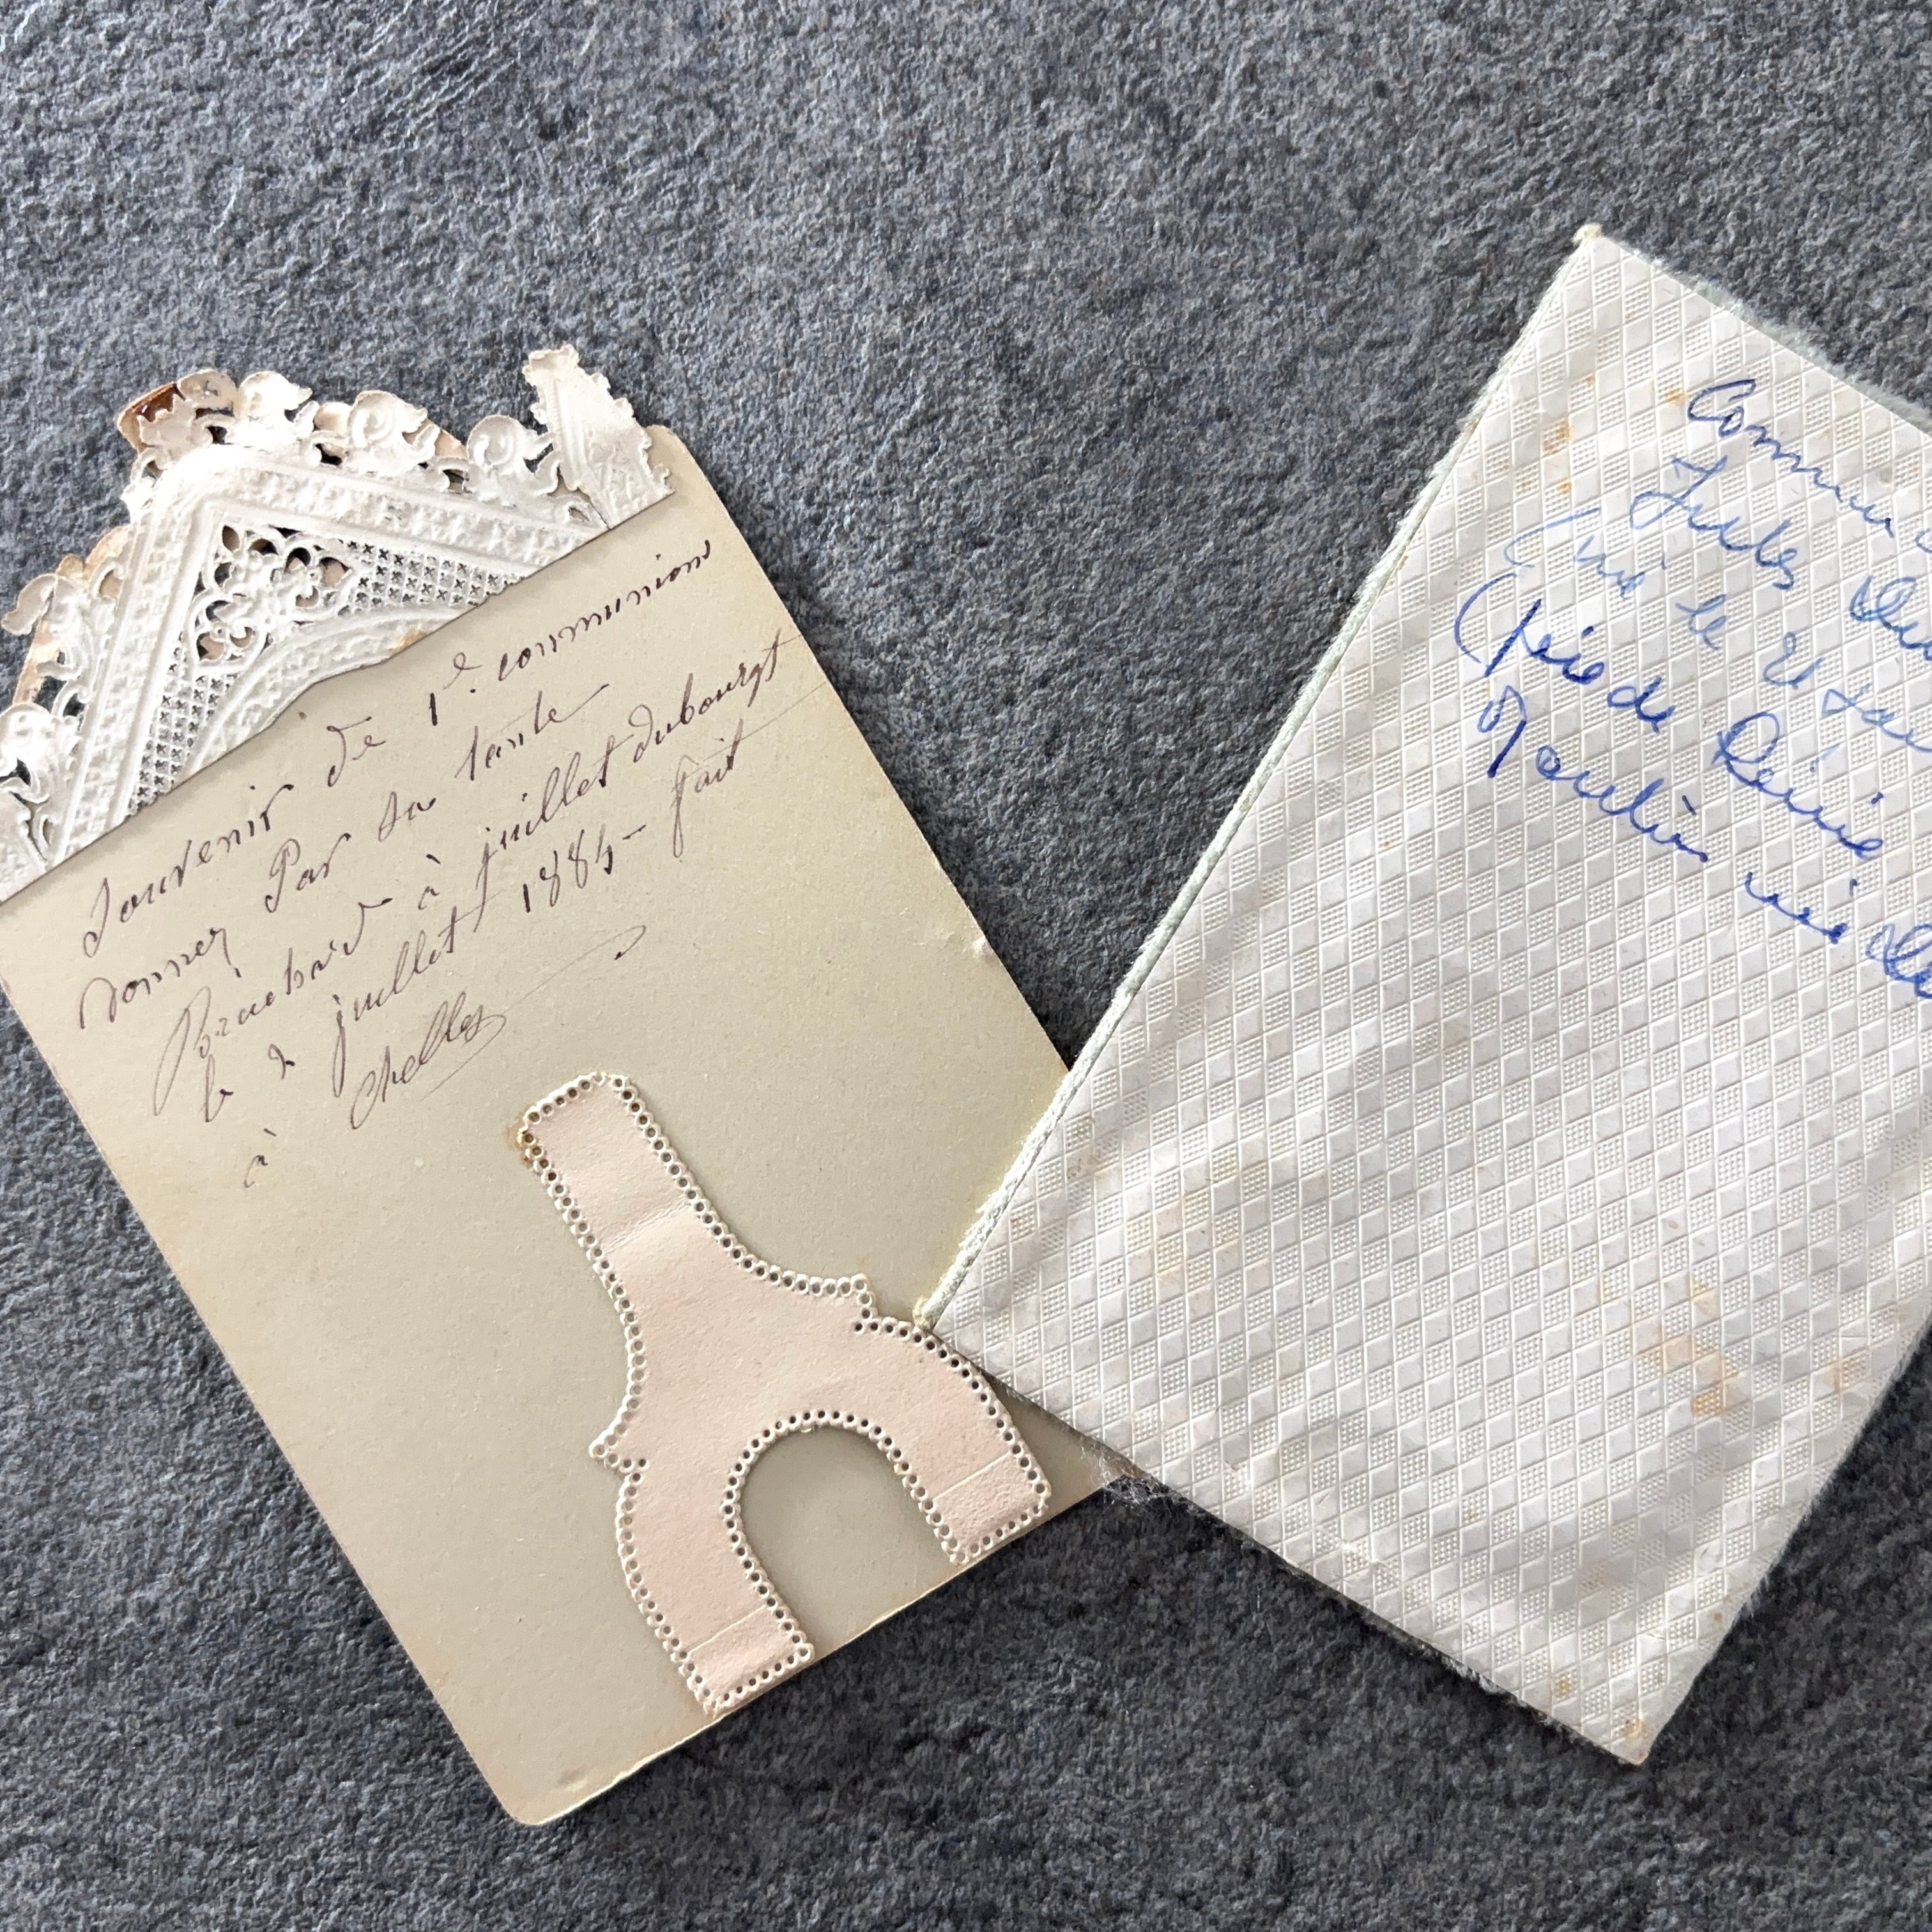 Souvenir de 1e. communion
donner Par sa tante
à juillet dubourgt
le 2 juillet 1885 - fait
à chelles
Commun
Jules Du
(Tué le
(Père de Rénie
Moulin née Du